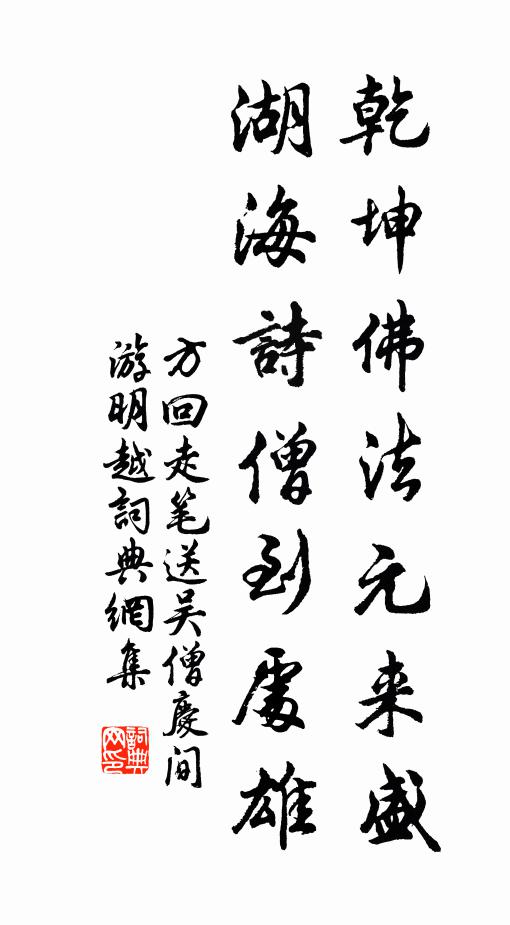 乾坤佛法元来盛
湖海詩僧到處雄
方回走笔送吴僧慶间
游明越詞典網集
詞典网印